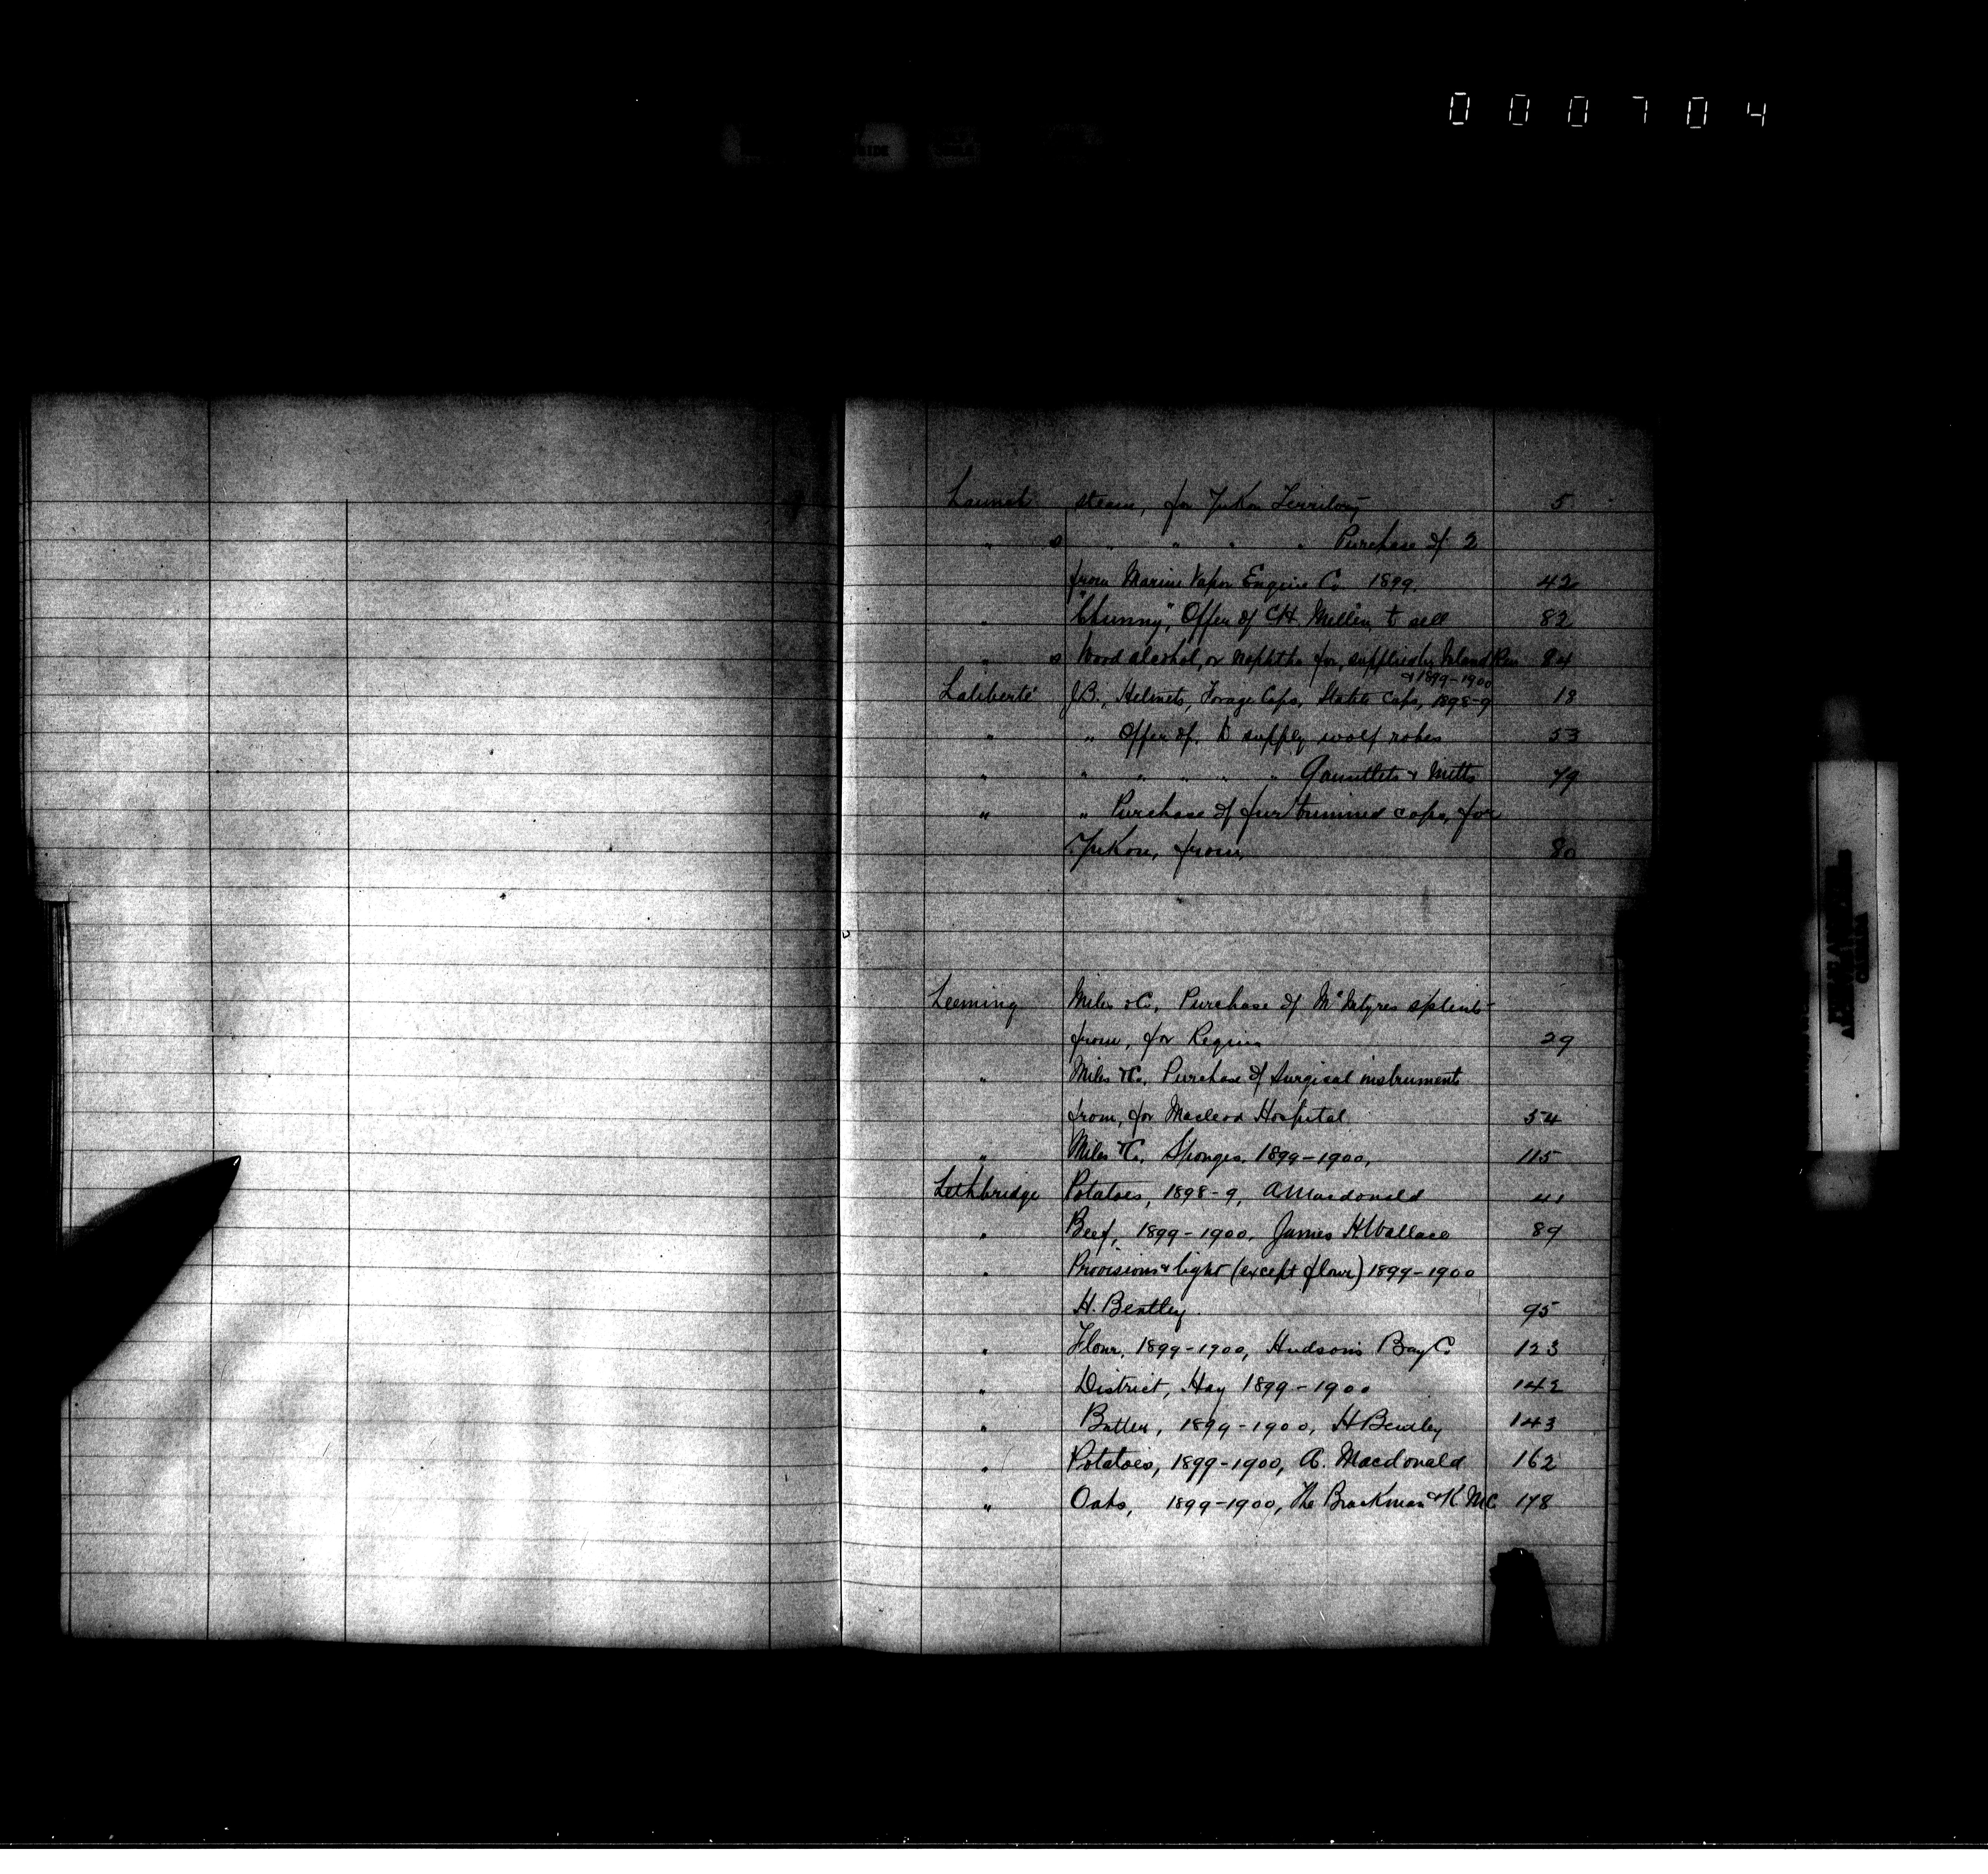 000704
Launch steam, for Yukon Territory 5
" s " " " " Purchase of 2
from Marine Vapor Engine Co 1899. 42
" Offer of C.H. Mellen to sell 82
" s Wood alcohol, or naphtha for, supplied by Inland Rev 84
& 1899-1900
Laliberté J.B., Helmets, Forage Caps, Caps, 1898-9 18
" " Offer of, to supply wolf robes 53
" " " " " " Gauntlets & Mitts 79
" " Purchase of fur trimmed caps, for
Yukon, from, 80
Leeming Miles & Co, Purchase of McIntyres splint
from, for Regina 29
" Miles & Co, Purchase of Surgical instruments
from, for Macleod Hospital. 54
" Miles & Co, Sponges, 1899-1900, 115
Lethbridge Potatoes, 1898-9, A Macdonald 41
" Beef, 1899-1900, James H Wallace 89
" Provisions & light (except flour) 1899-1900
H. Bentley. 95
" Flour, 1899-1900, Hudson's Bay Co 123
" District, Hay 1899-1900 142
" Butter, 1899-1900, H Bentley 143
" Potatoes, 1899-1900, A. Macdonald 162
" Oats, 1899-1900, The Brackman & K M Co 178